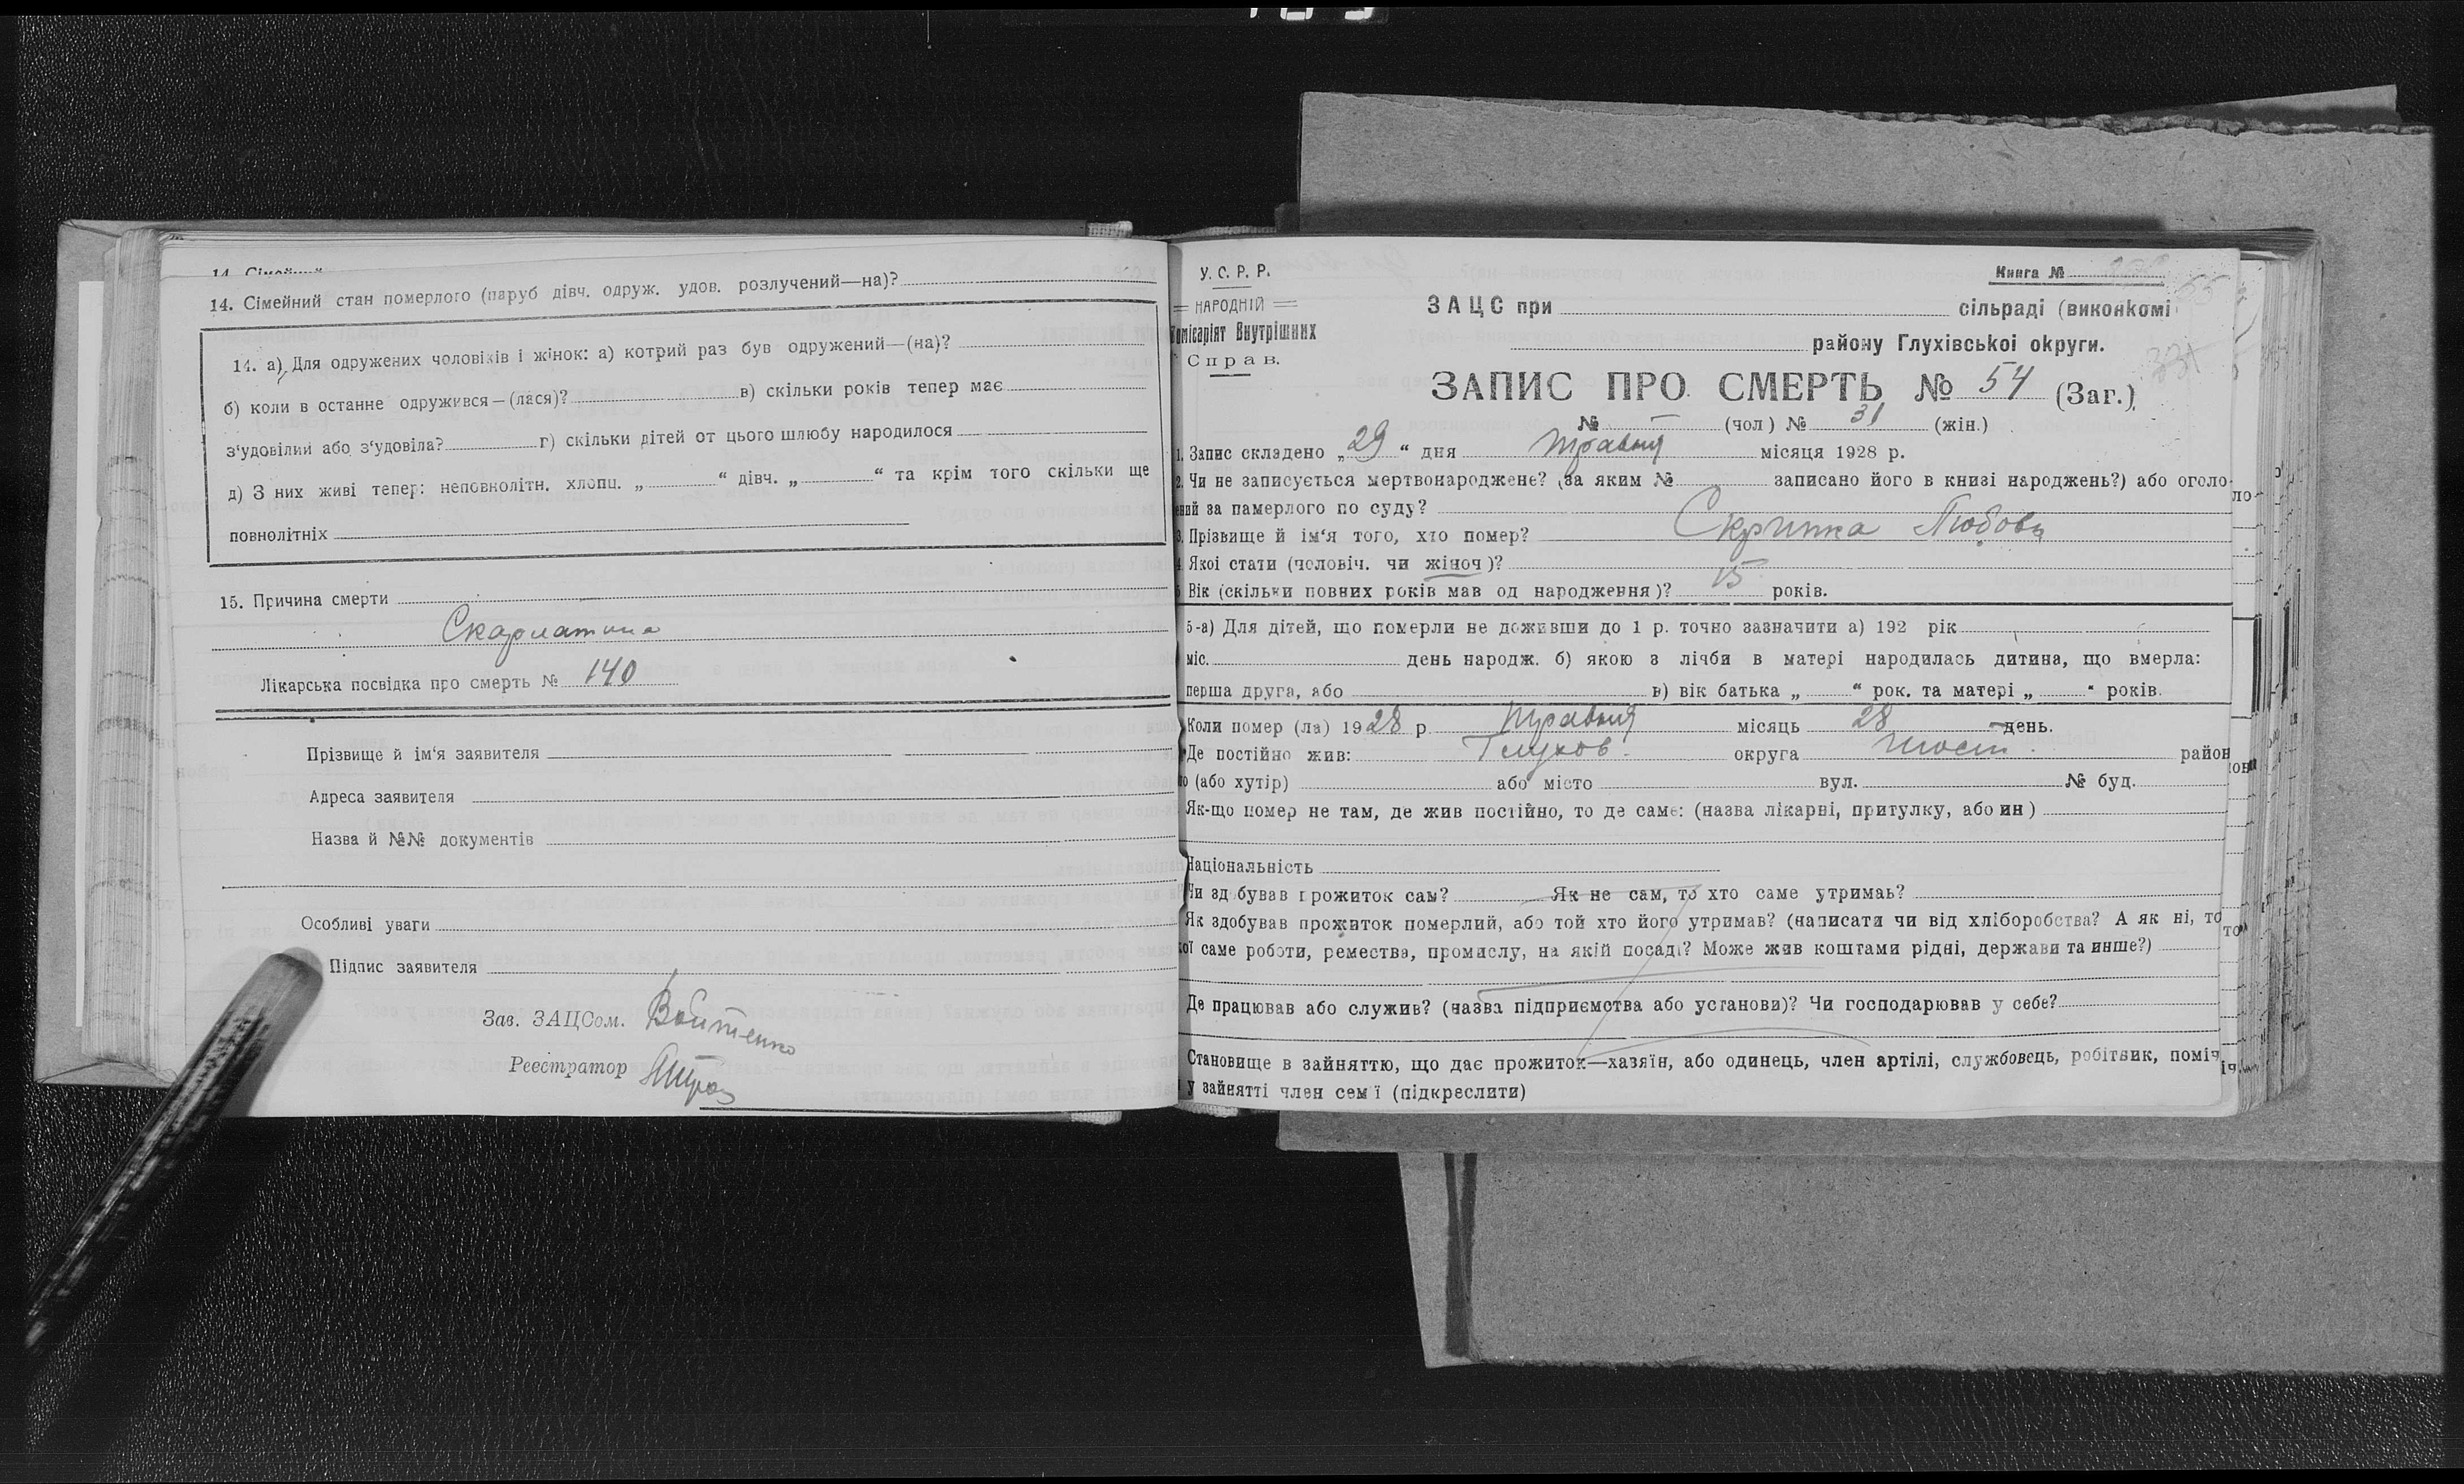 14. Сімейний
14. Сімейний стан померлого (паруб дівч. одруж. удов. розлучений—на)?
14. а) Для одружених чоловіків і жінок: а) котрий раз був одружений—(на)?
б) коли в останне одружився—(лася)? в) скільки років тепер має
з‘удовілий або з‘удовіла? г) скільки дітей от цього шлюбу народилося
д) З них живі тепер: неповнолітн. хлопц. „ “ дівч. „ “ та крім того скільки ще
повнолітніх
15. Причина смерти
Скарлатина
Лікарська посвідка про смерть № 140
Прізвище й ім‘я заявителя
Адреса заявителя
Назва й №№ документів
Особливі уваги
Підпис заявителя
Зав. ЗАЦСом. Войтенко
Реєстратор
У. С. Р. Р.
НАРОДНІЙ
Комісаріят Внутрішних
Справ.
Книга №
ЗАЦС при сільраді (виконкомі
району Глухівської округи.
ЗАПИС ПРО СМЕРТЬ № 54 (Заг.)
№ — (чол) № 31 (жін.)
1. Запис складено „29“ дня травня місяця 1928 р.
2. Чи не записується мертвонароджене? (за яким № записано його в книзі народжень?) або оголо-
ений за памерлого по суду?
3. Прізвище й ім‘я того, хто помер? Скрипка Любовь
4. Якої стати (чоловіч. чи жіноч)?
5 Вік (скільки повних років мав од народження)? 15 років.
5-а) Для дітей, що померли не доживши до 1 р. точно зазначити а) 192 рік
міс. день народж. б) якою з лічби в матері народилась дитина, що вмерла:
перша друга, або в) вік батька „ “ рок. та матері „ “ років.
Коли помер (ла) 1928 р травня місяць 28 день.
Де постійно жив: Глухов. округа Шост. район
о (або хутір) або місто вул. № буд.
Як-що помер не там, де жив постійно, то де саме: (назва лікарні, притулку, або ин)
Національність
Чи здобував прожиток сам? Як не сам, то хто саме утримаь?
Як здобував прожиток померлий, або той хто його утримав? (написати чи від хліборобства? А як ні, то
ої саме роботи, ремества, промислу, на якій посаді? Може жив коштами рідні, держави та инше?)
Де працював або служив? (назва підприємства або установи)? Чи господарював у себе?
Становище в зайняттю, що дає прожиток—хазяїн, або одинець, член артілі, службовець, робітник, поміч
у зайнятті член сем ї (підкреслити)